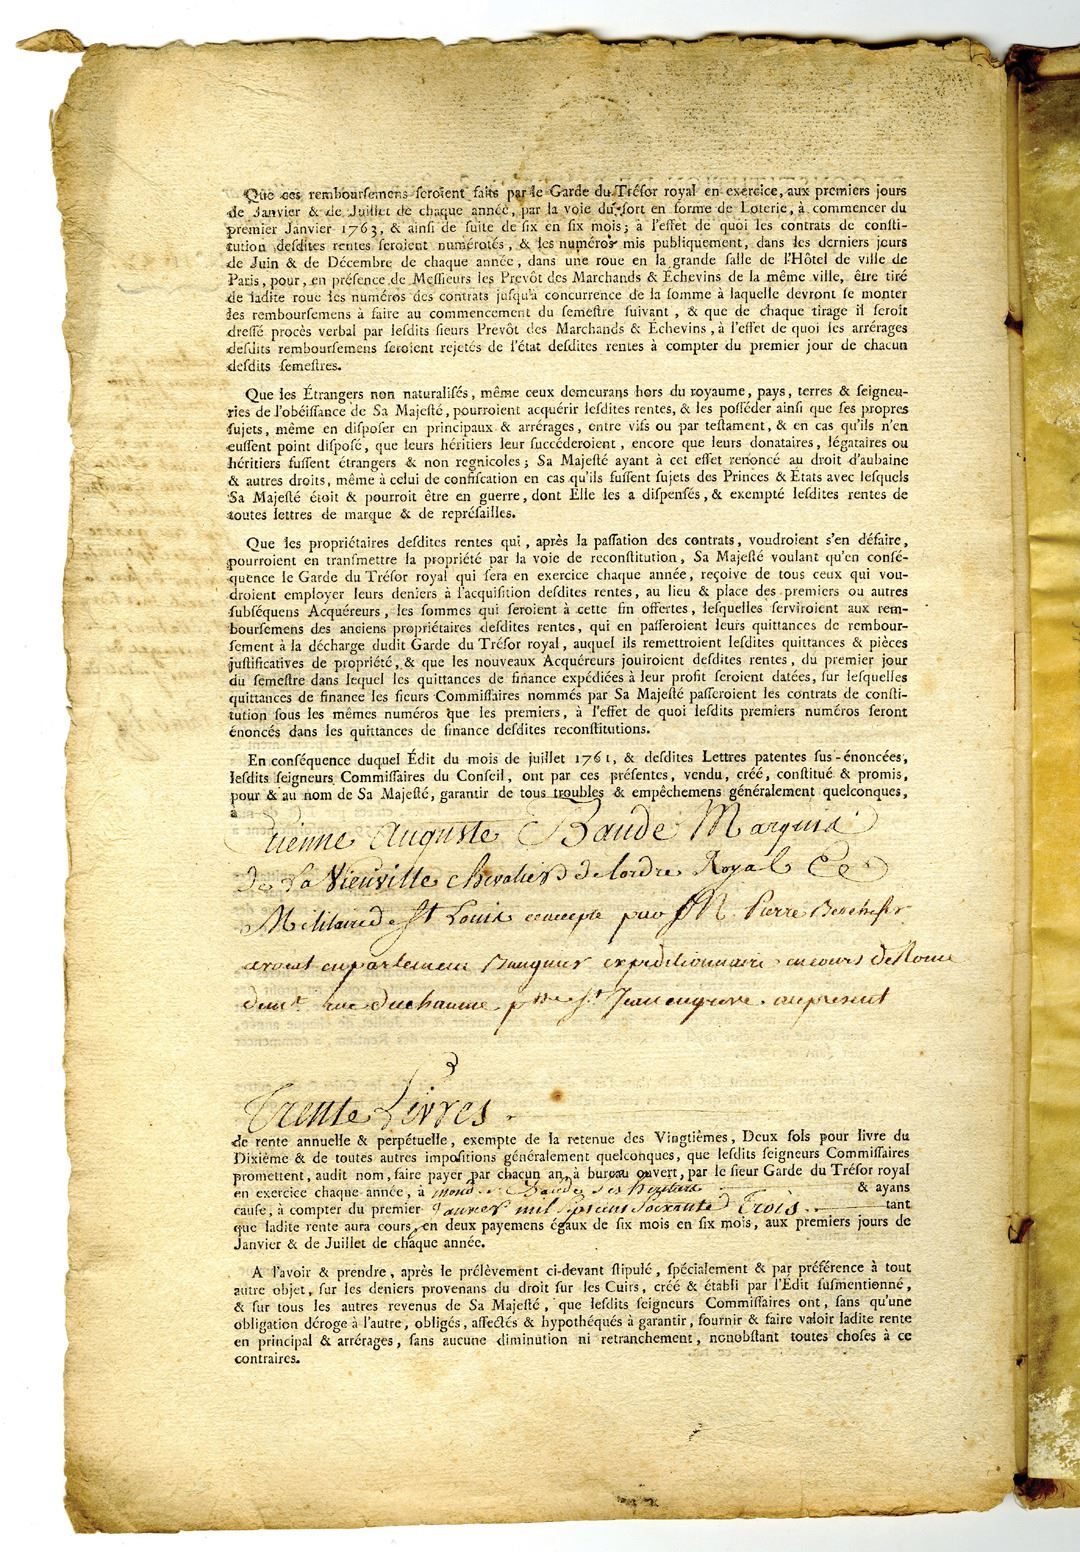 Que ces remboursemens seroient faits par le Garde du Trésor royal en exercice, aux premiers jours
de Janvier & de Juillet de chaque année, par la voie du sort en forme de Loterie, à commencer du
premier Janvier 1763, & ainsi de suite de six en six mois; à l'effet de quoi les contrats de consti-
tution desdites rentes seroient numérotés, & les numéros mis publiquement, dans les derniers jours
de Juin & de Décembre de chaque année, dans une roue en la grande salle de l'Hôtel de ville de
Paris, pour, en présence de Messieurs les Prevôt des Marchands & Échevins de la même ville, être tiré
de ladite roue les numéros des contrats jusqu'à concurrence de la somme à laquelle devront se monter
les remboursemens à faire au commencement du semestre suivant, & que de chaque tirage il seroit
dressé procès verbal par lesdits sieurs Prevôt des Marchands & Échevins, à l'effet de quoi les arrérages
desdits remboursemens seroient rejetés de l'état desdites rentes à compter du premier jour de chacun
desdits semestres.
Que les Étrangers non naturalisés, même ceux demeurans hors du royaume, pays, terres & seigneu-
ries de l'obéissance de Sa Majesté, pourroient acquérir lesdites rentes, & les posséder ainsi que ses propres
sujets, même en disposer en principaux & arrérages, entre vifs ou par testament, & en cas qu'ils n'en
eussent point disposé, que leurs héritiers leur succéderoient, encore que leurs donataires, légataires ou
héritiers fussent étrangers & non regnicoles; Sa Majesté ayant à cet effet renoncé au droit d'aubaine
& autres droits, même à celui de confiscation en cas qu'ils fussent sujets des Princes & États avec lesquels
Sa Majesté étoit & pourroit être en guerre, dont Elle les a dispensés, & exempté lesdites rentes de
toutes lettres de marque & de représailles.
Que les propriétaires desdites rentes qui, après la passation des contrats, voudroient s'en défaire,
pourroient en transmettre la propriété par la voie de reconstitution, Sa Majesté voulant qu'en consé-
quence le Garde du Trésor royal qui sera en exercice chaque année, reçoive de tous ceux qui vou-
droient employer leurs deniers à l'acquisition desdites rentes, au lieu & place des premiers ou autres
subséquens Acquéreurs, les sommes qui seroient à cette fin offertes, lesquelles serviroient aux rem-
boursemens des anciens propriétaires desdites rentes, qui en passeroient leurs quittances de rembour-
sement à la décharge dudit Garde du Trésor royal, auquel ils remettroient lesdites quittances & pièces
justificatives de propriété, & que les nouveaux Acquéreurs jouiroient desdites rentes, du premier jour
du semestre dans lequel les quittances de finance expédiées à leur profit seroient datées, sur lesquelles
quittances de finance les sieurs Commissaires nommés par Sa Majesté passeroient les contrats de consti-
tution sous les mêmes numéros que les premiers, à l'effet de quoi lesdits premiers numéros seront
énoncés dans les quittances de finance desdites reconstitutions.
En conséquence duquel Édit du mois de juillet 1761, & desdites Lettres patentes sus-énoncées,
lesdits seigneurs Commissaires du Conseil, ont par ces présentes, vendu, créé, constitué & promis,
pour & au nom de Sa Majesté, garantir de tous troubles & empêchemens généralement quelconques,
à
Etienne Auguste Baude Marquis
de La Vieuville chevalier de lordre Royal Et
Militaire de St Louis par M. Pierre
avocat en parlement Banquier expeditionnaire en cour de Rome
demt. rue du chaume psse St Jean en greve. a ce present
Trente Livres
de rente annuelle & perpétuelle, exempte de la retenue des Vingtièmes, Deux sols pour livre du
Dixième & de toutes autres impositions généralement quelconques, que lesdits seigneurs Commissaires
promettent, audit nom, faire payer par chacun an, à bureau ouvert, par le sieur Garde du Trésor royal
en exercice chaque année, à Baude ses & ayans
cause, à compter du premier Janvier mil Sept cent Soixante Trois tant
que ladite rente aura cours, en deux payemens égaux de six mois en six mois, aux premiers jours de
Janvier & de Juillet de chaque année.
A l'avoir & prendre, après le prélèvement ci-devant stipulé, spécialement & par préférence à tout
autre objet, sur les deniers provenans du droit sur les Cuirs, créé & établi par l'Édit susmentionné,
& sur tous les autres revenus de Sa Majesté, que lesdits seigneurs Commissaires ont, sans qu'une
obligation déroge à l'autre, obligés, affectés & hypothéqués à garantir, fournir & faire valoir ladite rente
en principal & arrérages, sans aucune diminution ni retranchement, nonobstant toutes choses à ce
contraires.